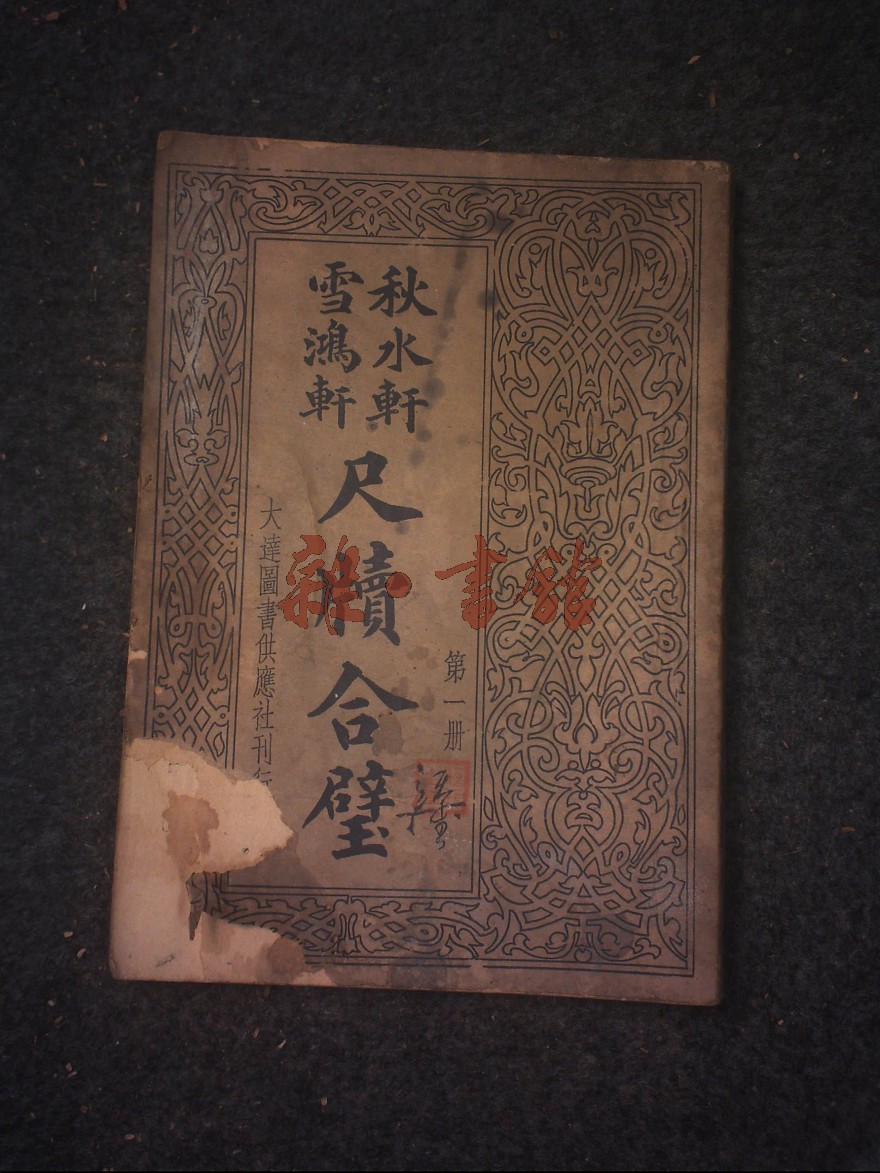 秋水軒
雪鴻軒
尺牘合璧
第一册
大達圖書供應社刊行
書館